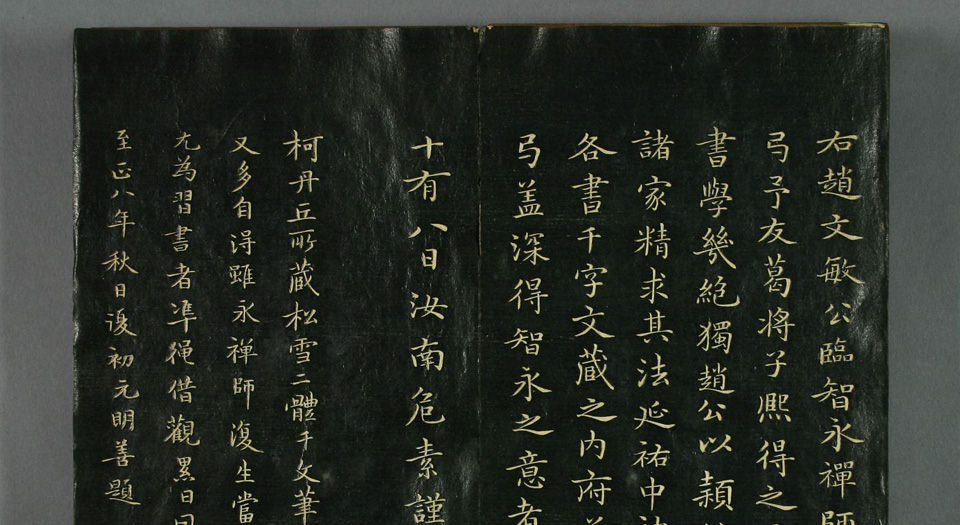 右趙文敏公臨智永禪師
弓予友葛將子熈得之
書學幾絕獨趙公以穎
諸家精求其法延祐中
各書千字文藏之内府
弓盖深得智永之意者
十有八日汝南危素謹
柯丹丘所蔵松雪二體千文筆
又多自淂雖永禅師復生當
尤為習書者凖绳借觀累日因
至正八年秋日復初元明善題